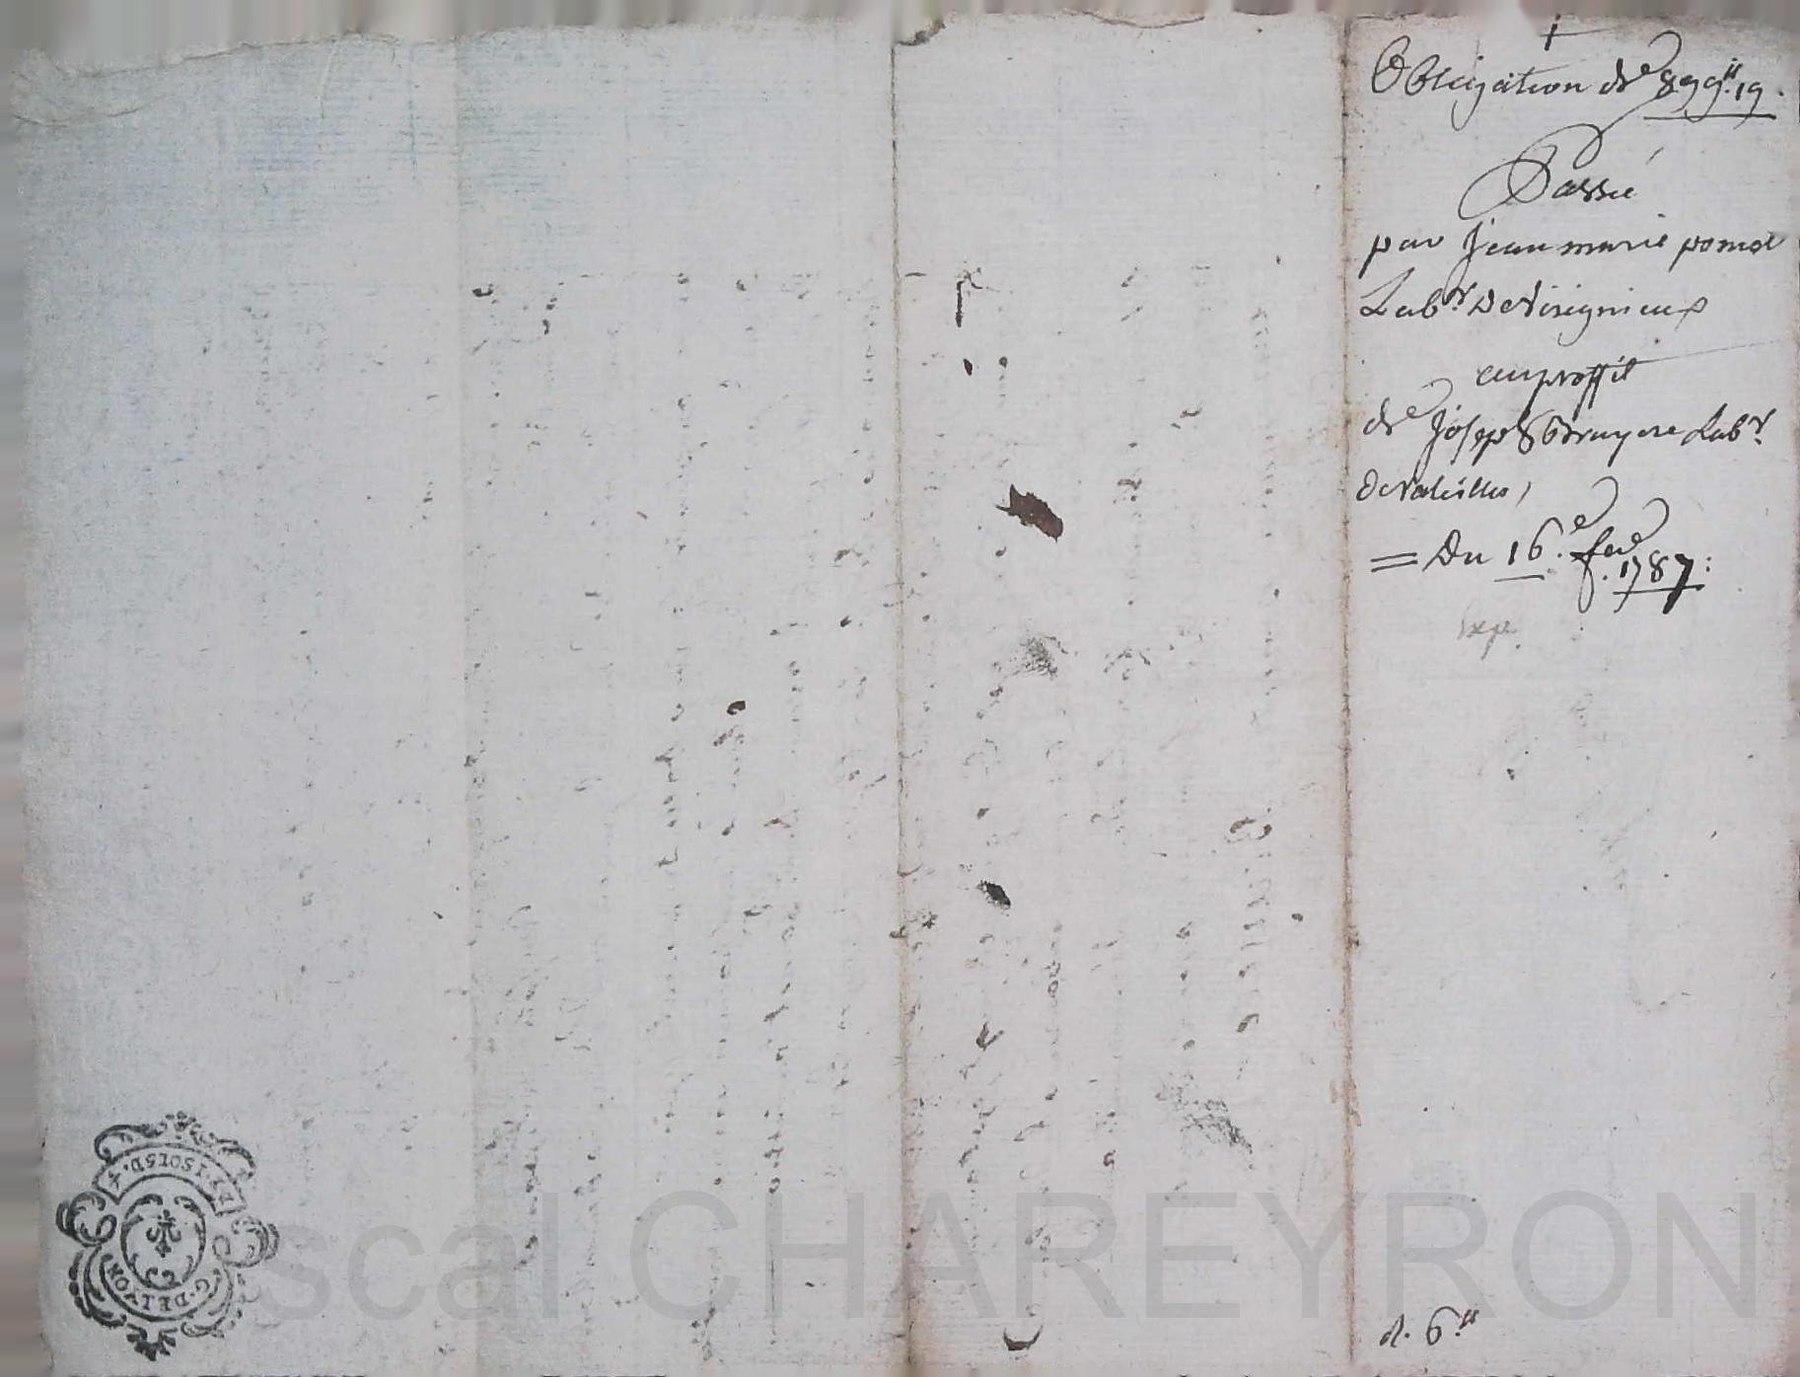 Obligation de 899.ᵗᵗ 19.
Passée
par Jean marie pomet
Lab.ʳ De Virignieux
au proffit
de Joseph Bruyere Lab.ʳ
De Valeilles,
= Du 16.ᵉ fev.ᵉ 1787:
Exp.
d. 6.ᵗᵗ
DEUX.SOLS.D.4
G.DE LYON
scal CHAREYRON